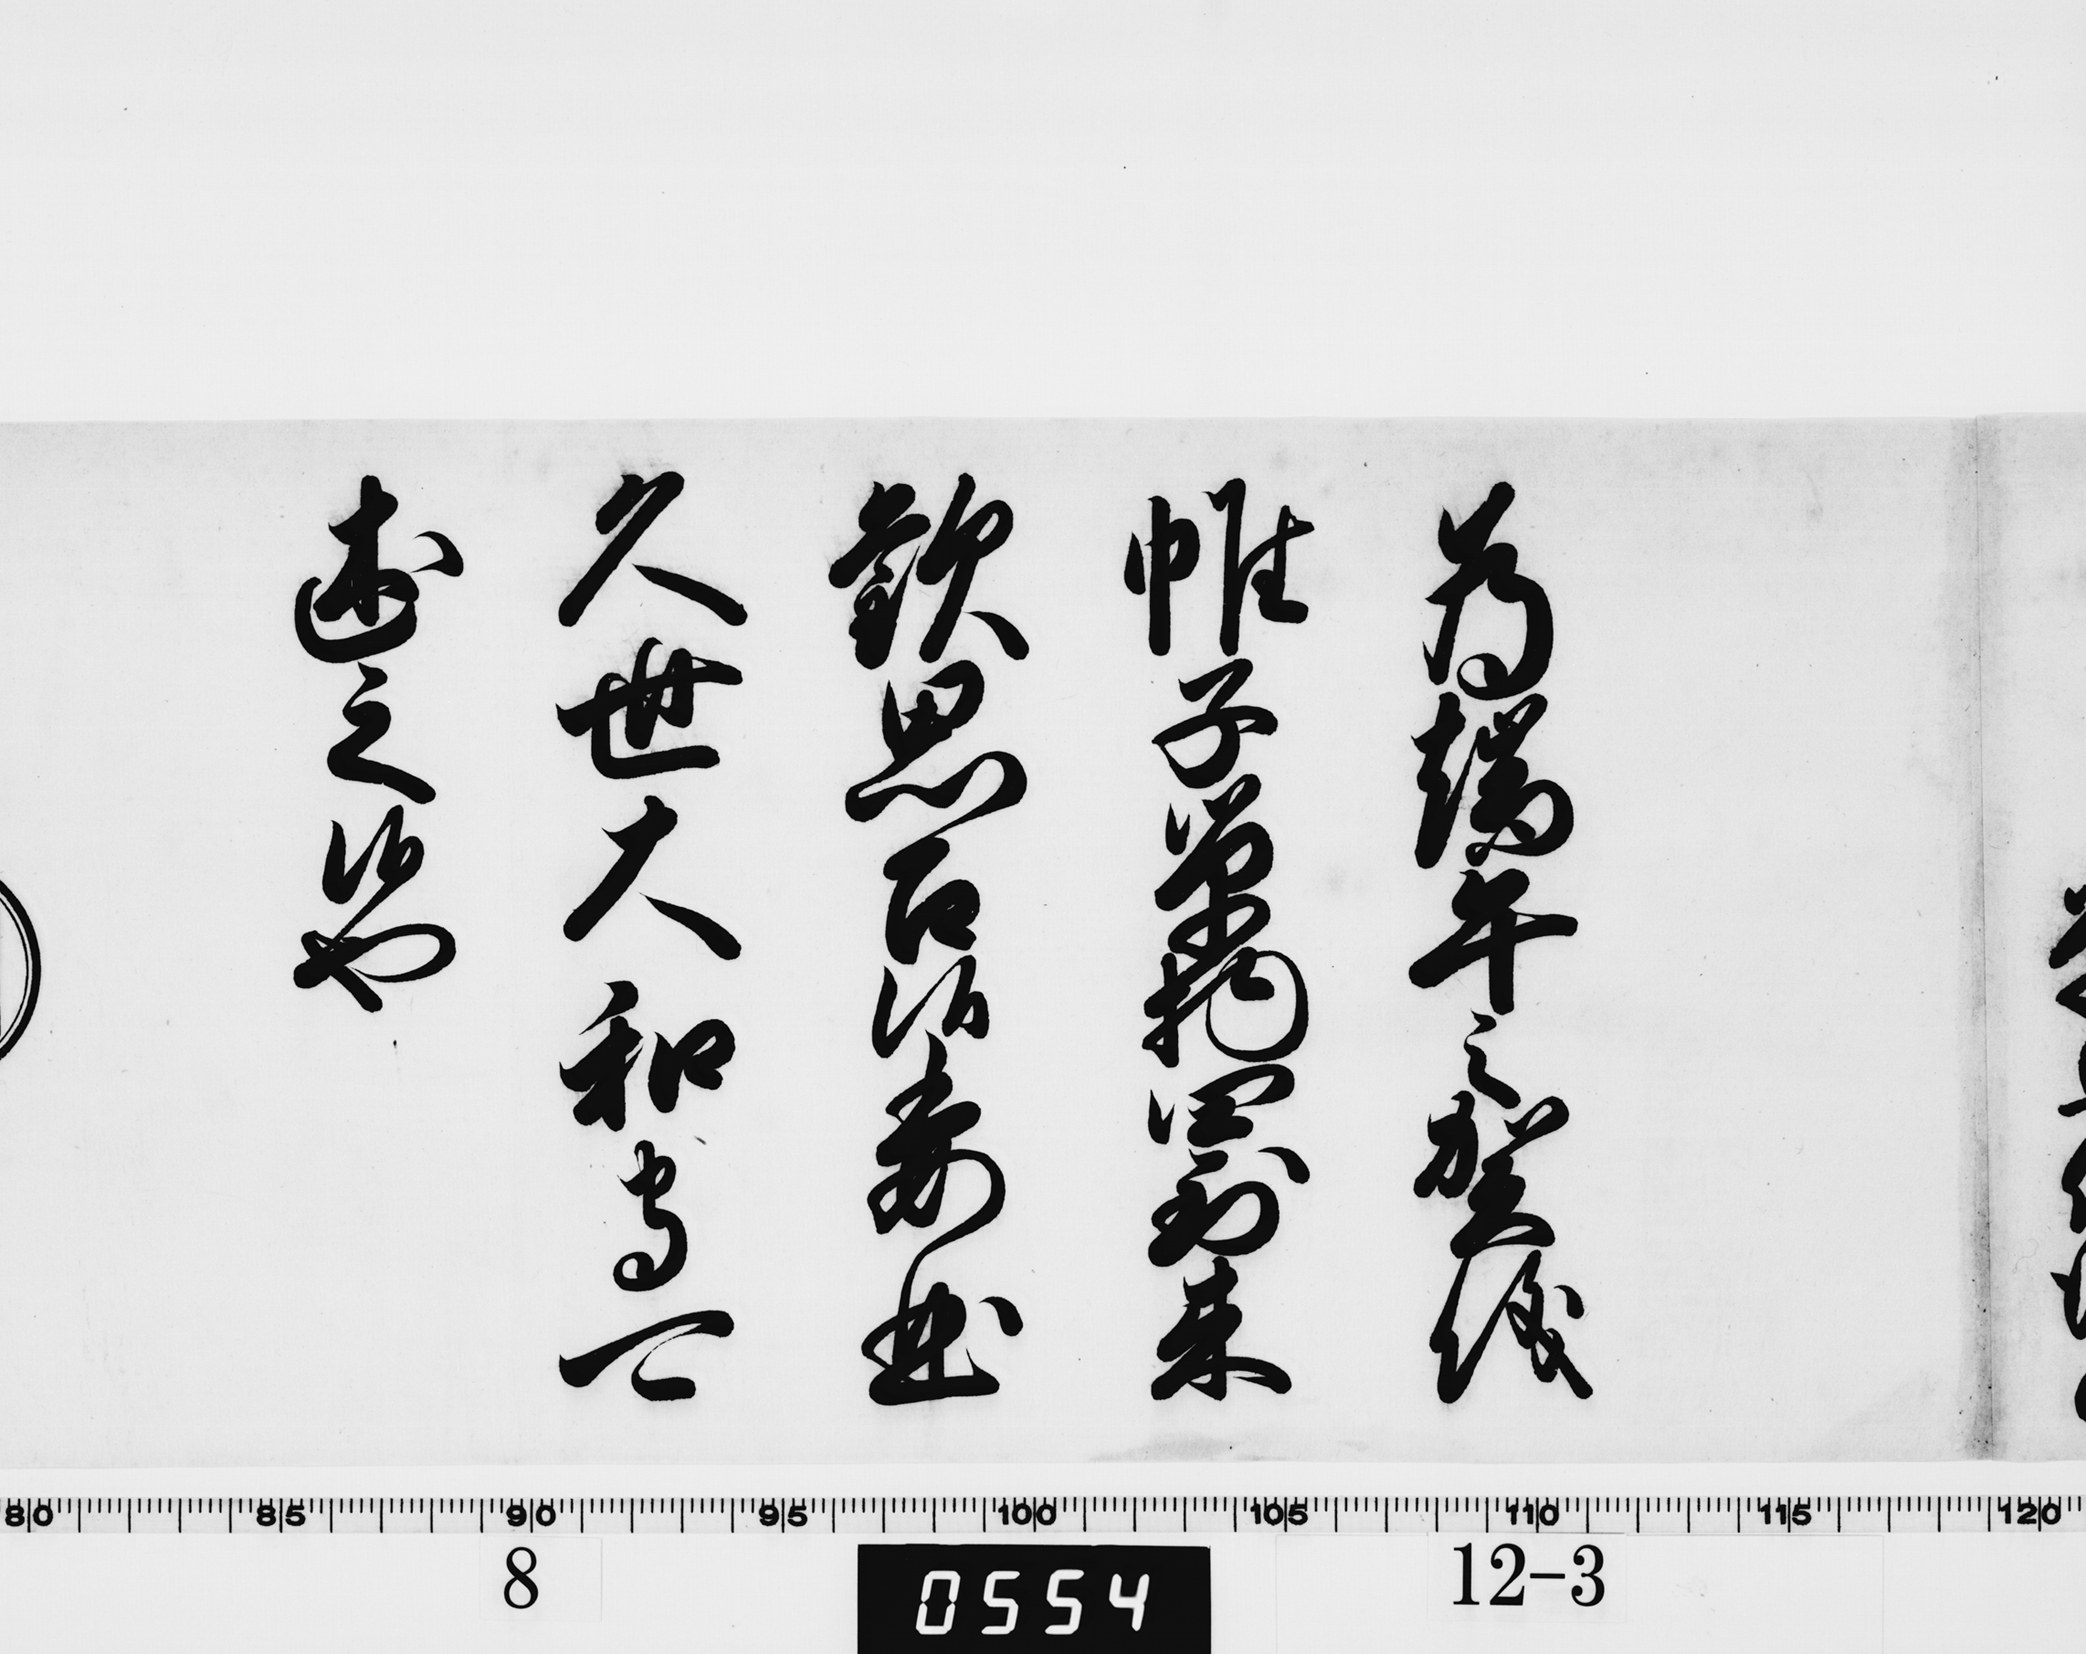 為端午之賀儀
帷子単物到来
歓思召候委曲
久世大和守可
述之候也
80 85 90 95 100 105 110 115 120
8 0554 12-3